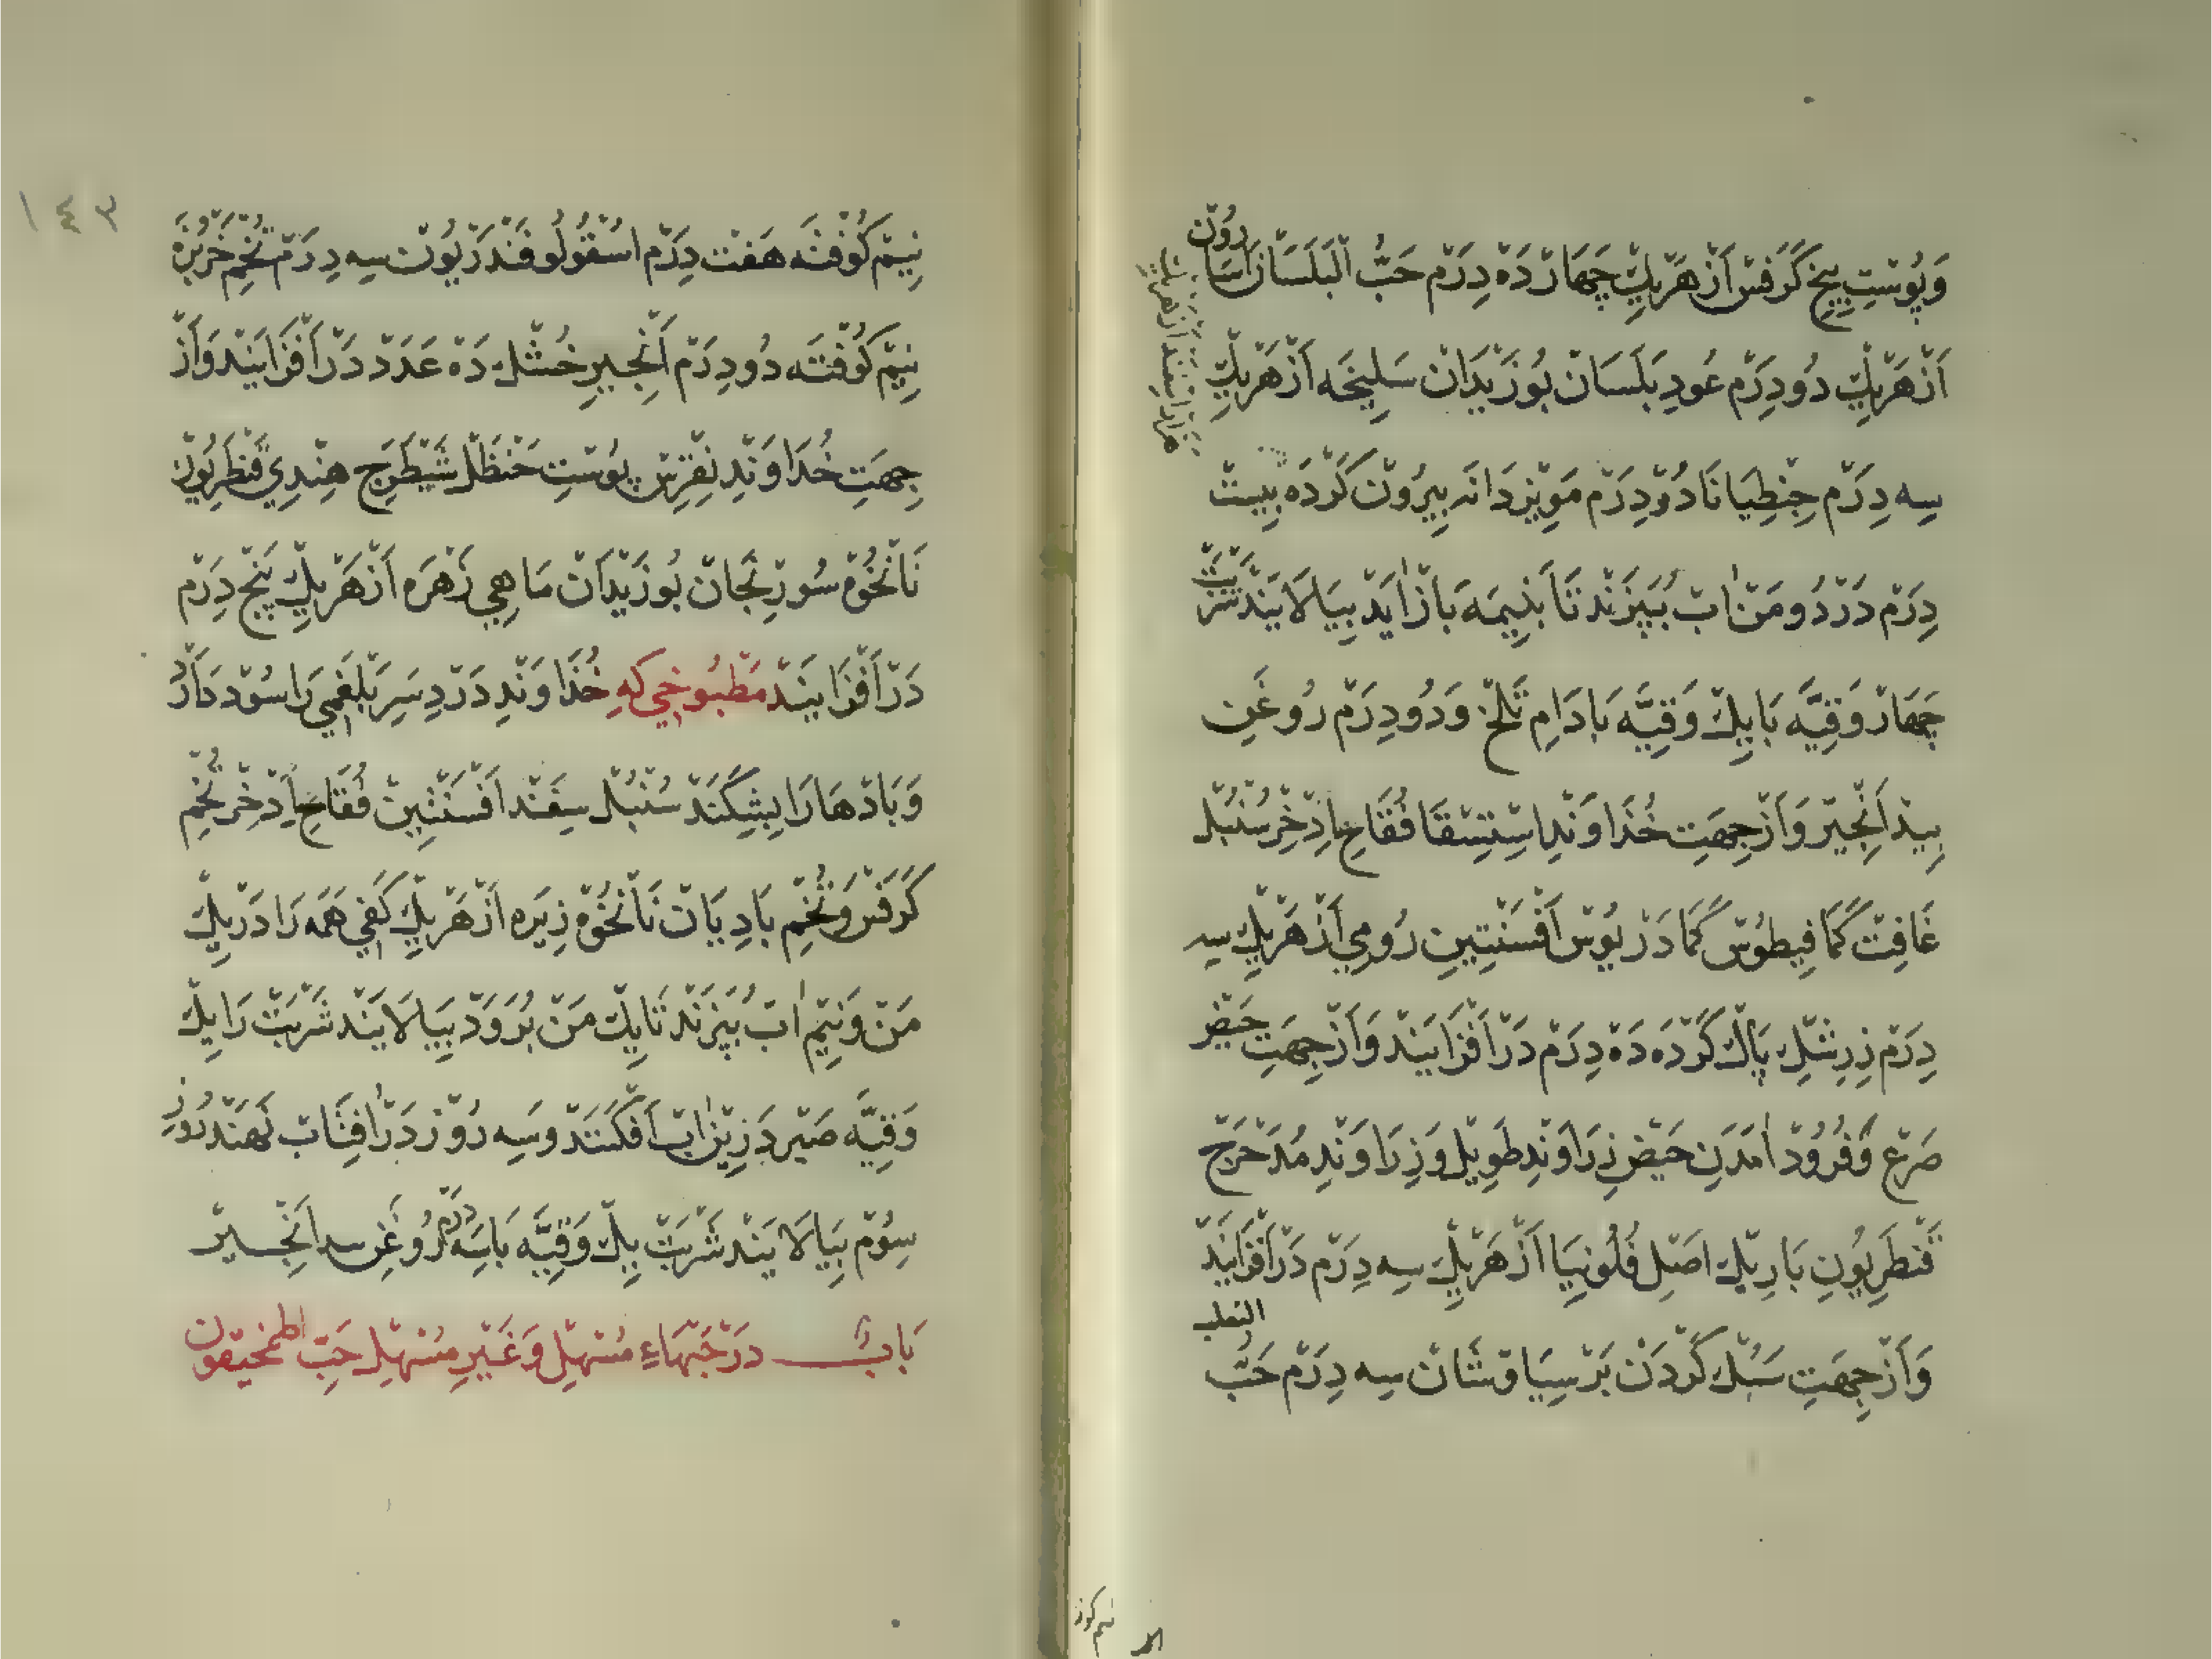 وَپُوسْتِ بِيخِ كَرَفْسْ اَزْ هَرْيِكِيْ چَهَارْدَهْ دِرَمْ حَبُّ الْبَلَسَانْ اَسَارُونْ
اَزْ هَرْيِكِيْ دُو دِرَمْ عُودِ بَلَسَانْ بُوزَيْدَانْ سَلِيخَه اَزْ هَرْيِكِيْ
سِه دِرَمْ جِنْطِيَانَا دُوْ دِرَمْ مَوِيْزِ دَانَه بِيرُونْ كَرْدَه بِيسْتْ
دِرَمْ دَرْ دُو مَنْ آبْ بُپَيْزَنْدْ تَا بَنِيمَه بَازْ آيَدْ بِيَالَايَنْدْ شَرْبَتْ
چَهَارْ وَقِيَّه بَا يِكْ وَقِيَّه بَادَامِ تَلْخْ وَدُو دِرَمْ رُوغَنِ
بِيدْ اَنْجِيرْ وَاَزْ جِهَتِ خُذَاوَنْدِ اِسْتِسْقَا فُقَّاحِ اِذْخِرْ سُنْبُلْ
غَافِتْ كَمَافِيطُوسْ كَمَادَرْيُوسْ اَفْسَنْتِينِ رُومِي اَزْ هَرْيِكِيْ سِه
دِرَمْ زِرِشْكِ پَاكْ كَرْدَه دَهْ دِرَمْ دَرْ اَفْزَايَنْدْ وَاَزْ جِهَتِ حَيْضْ
صَرْعْ وَفُرُودْ آمَدَنِ حَيْضْ زِرَاوَنْدِ طَوِيلْ وَزِرَاوَنْدِ مُدَحْرَجْ
قَنْطَرِيُونِ بَارِيكْ اَصْلِ فُلُونِيَا اَزْ هَرْيِكِيْ سِه دِرَمْ دَرْ اَفْزَايَنْدْ
وَاَزْ جِهَتِ سَبُكْ كَرْدَنْ بَرْسِيَاوَشَانْ سِه دِرَمْ حَبُّ الثعلب
نِيمْ كُوفْتَه هَفْتْ دِرَمْ اُسْقُولُوقَنْدَرْيُونْ سِه دِرَمْ تُخْمِ خَرْبُزَه
نِيمْ كُوفْتَه دُو دِرَمْ اَنْجِيرِ خُشْكْ دَه عَدَدْ دَرْ اَفْزَايَنْدْ وَاَزْ
جِهَتِ خُدَاوَنْدِ نِقْرِسْ پوسْتِ حَنْظَلْ شَيْطَرَجِ هِنْدِيْ قَنْطَرِيُونْ
نَانْخُوَهْ سُورِنْجَانْ بُوزَيْدَانْ مَاهِي زَهْرَه اَزْ هَرْيِكِيْ پَنْجْ دِرَمْ
دَرْ اَفْزَايَنْدْ مَطْبُوخِي كِه خُذَاوَنْدِ دَرْدِ سَرِ بَلْغَمِي رَا سُوْدْ دَارَدْ
وَبَادْهَا رَا بِشِكَنَدْ سُنْبُلْ سِفَنْد اَفْسَنْتِينْ فُقَّاحِ اِذْخِرْ تُخْمِ
كَرَفْسْ وَتُخْمِ بَادِيَانْ نَانْخُوَهْ زِيرَه اَزْ هَرْيِكِيْ كَفِي هَمَه رَا دَرْ يِكْ
مَنْ وَنِيمْ آبْ بُپَيْزَنْدْ تَا يِكْ مَنْ بُرَوَدْ بِيَالَايَنْدْ شَرْبَتْ رَا يِكْ
وَقِيَّه صَبِرْ دَرِيْنْ آبْ اَفْكَنَنْدْ وَسِه رُوْزْ دَرْ آفِتَابْ نَهَنْدْ رُوزِ
سِوُمْ بِيَالَايَنْدْ شَرْبَتْ يِكْ وَقِيَّه بَا سَه دِرَمْ رُوغَنِ بيد اَنْجِيرْ
بَابْ دَرْ حَبْهَاءِ مُسْهِلْ وَغَيْرِ مُسْهِلْ حَبِّ اطمخيقون
١٤٣